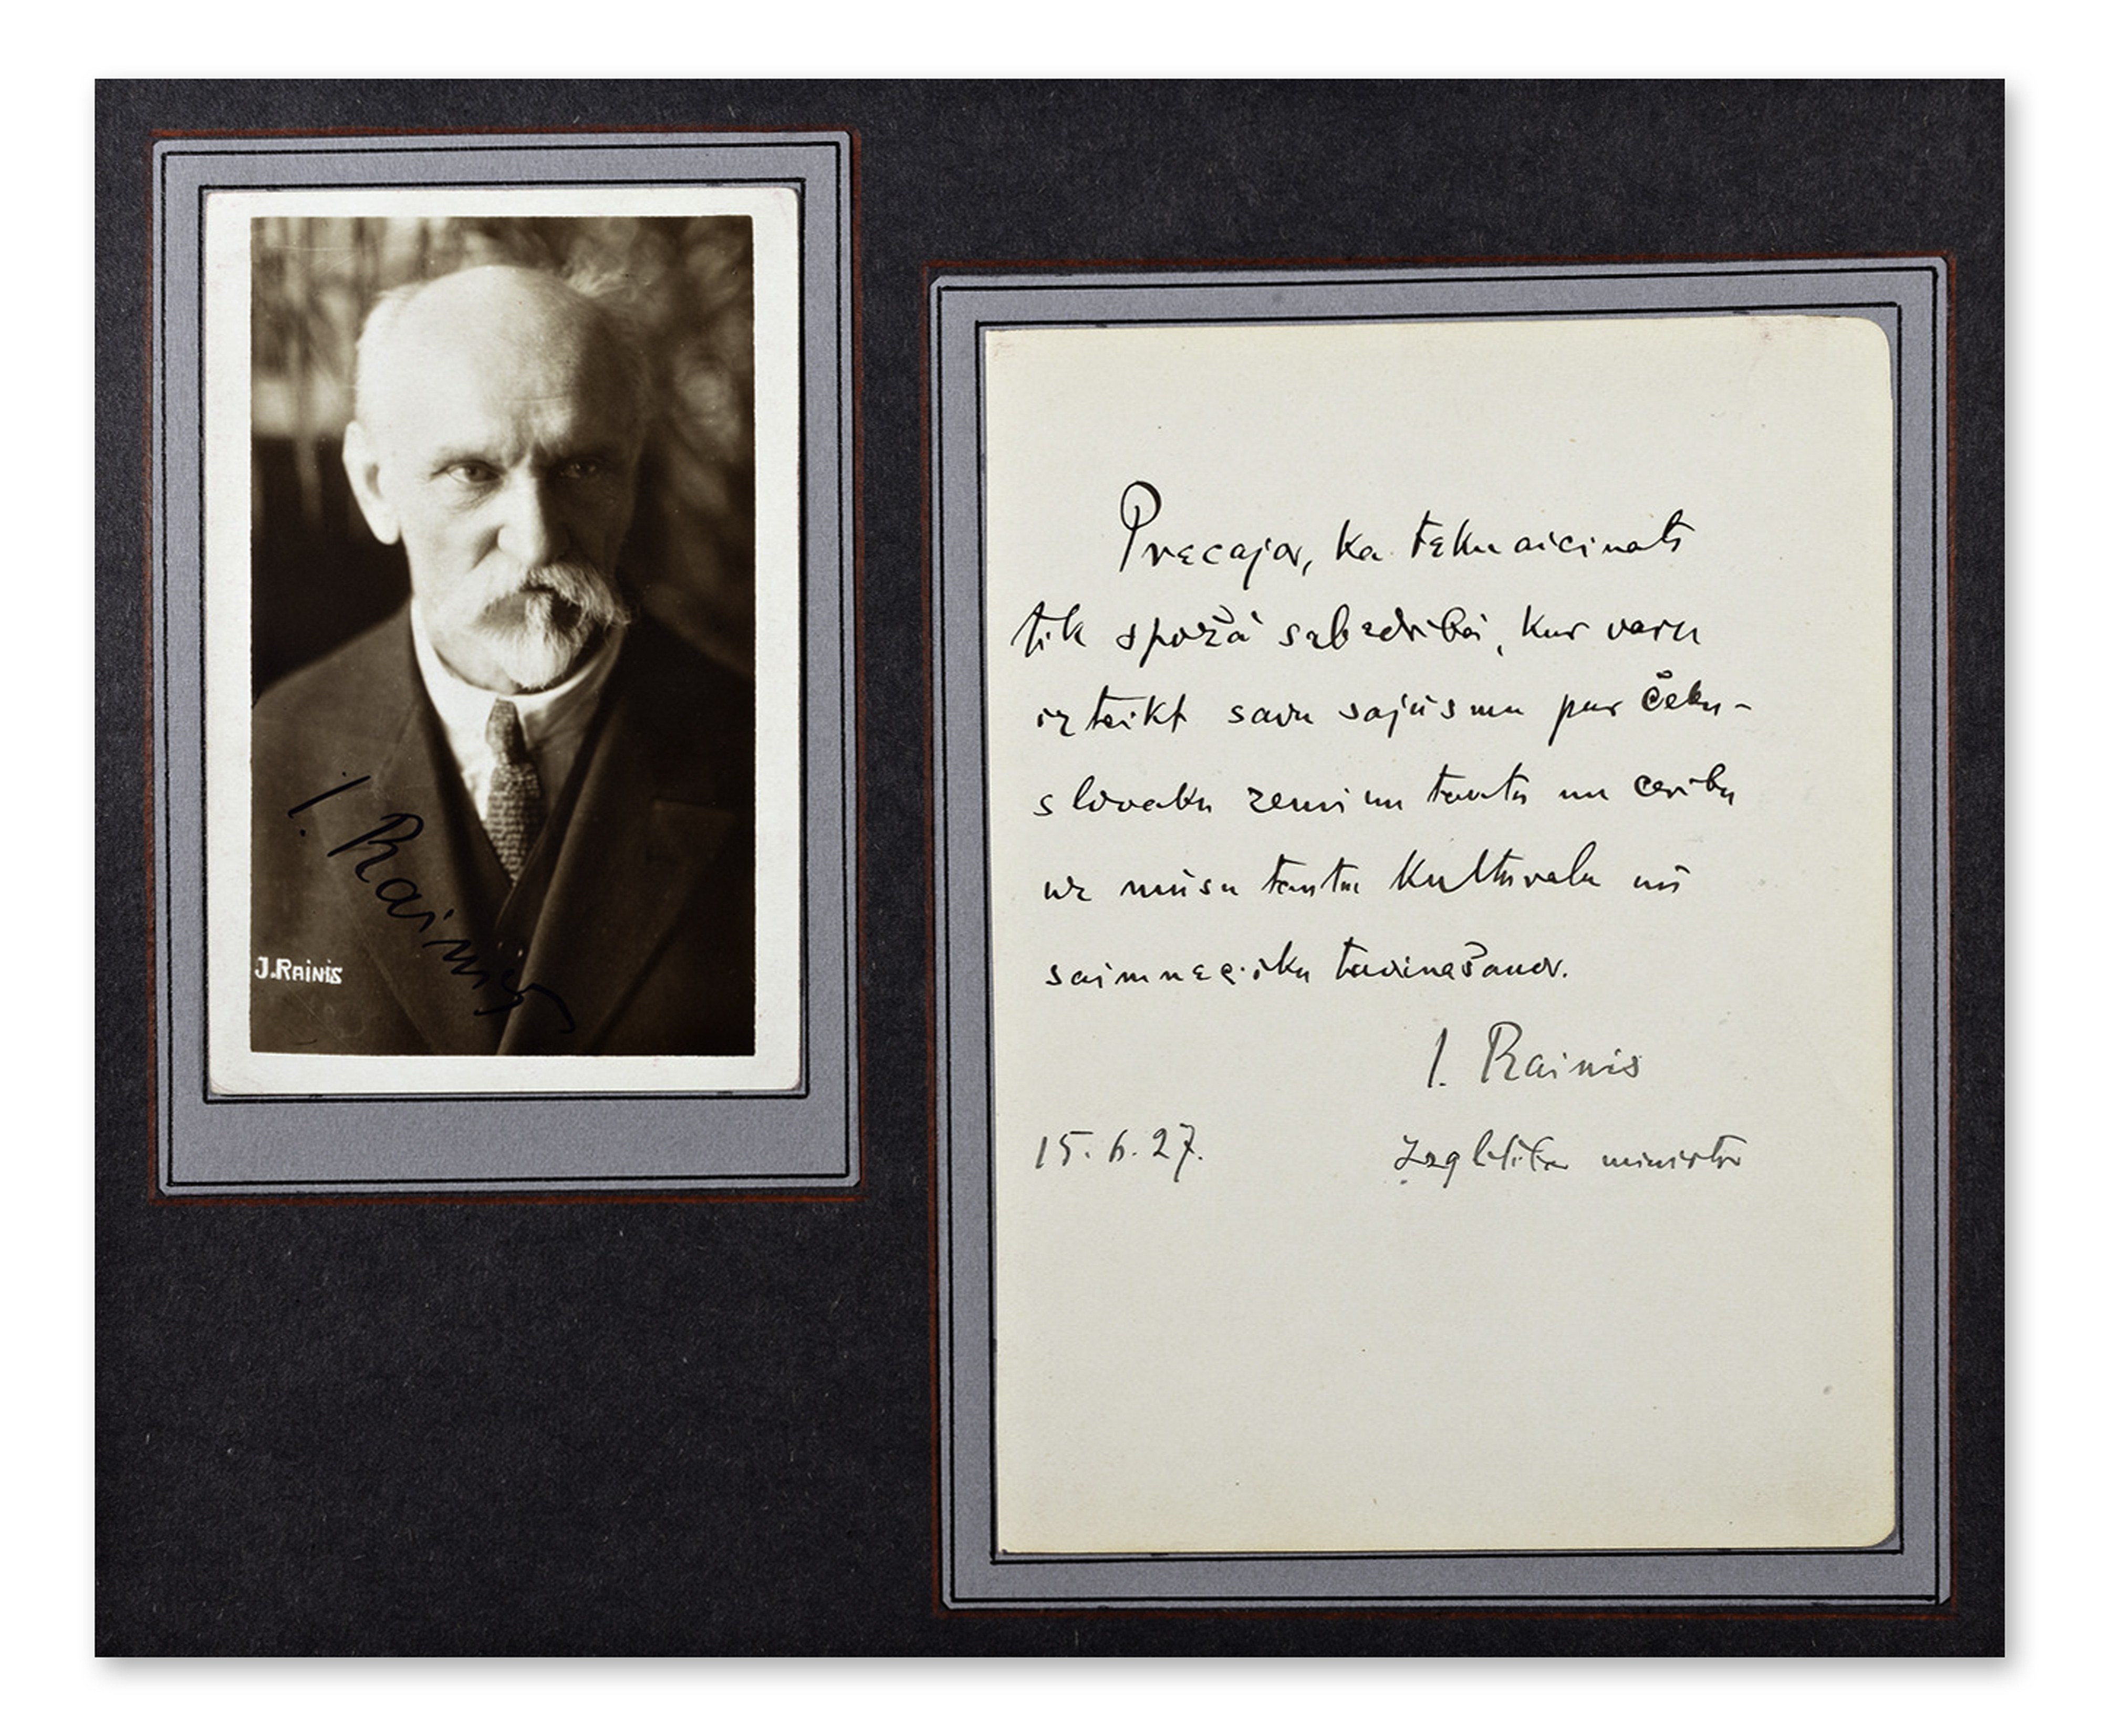 I. Rainis
J. RAINIS
Precajos, ka teku aicinats
tik spožā sabedribā, kur varu
izteikt savu sajūsmu par čeku-
slovaku zemi un tautu un ceribu
uz mūsu tautu kulturalu un
saimnecisku tuvinašanos.
I. Rainis
15.6.27. Izglitibas ministrs